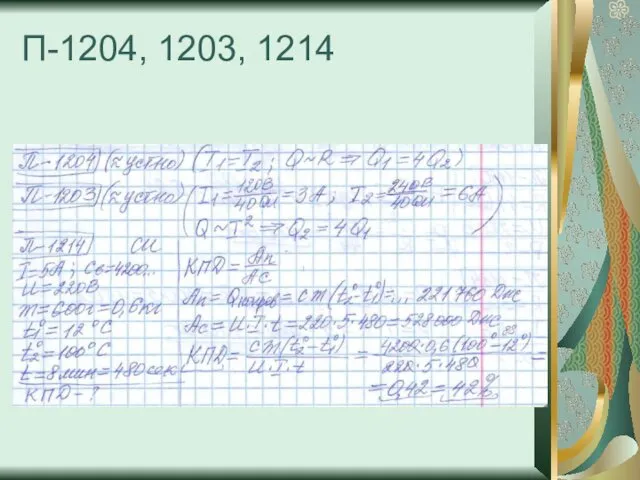 П-1204, 1203, 1214
П-1204) (≈устно) (I₁=I₂; Q~R ⇒ Q₁=4Q₂)
П-1203) (≈устно) (I₁=120В/40Ом=3А; I₂=240В/40Ом=6А
Q~I² ⇒ Q₂=4Q₁)
П-1214) СИ
I=5А; Cв=4200..
U=220В
m=600г=0,6кг
t₁°=12°C
t₂°=100°C
t=8мин=480сек
КПД-?
КПД=Aп/Aс
Aп=Qнагрев=cm(t₂°-t₁°)=... 221760 Дж
Aс=U·I·t=220·5·480=528000 Дж
КПД=cm(t₂°-t₁°)/U·I·t=4200·0,6(100°-12°)/220·5·480=
=0,42=42%